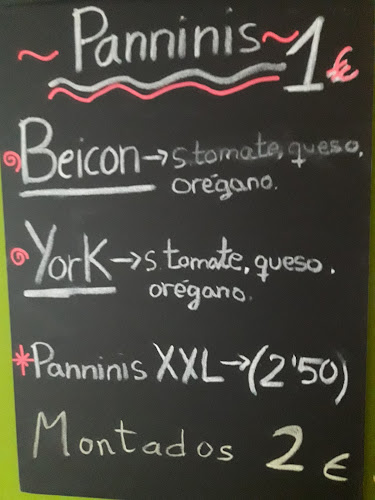 ~Panninis~ 1€
Beicon → s.tomate, queso,
orégano.
York → s.tomate, queso,
orégano.
* Panninis XXL → (2'50)
Montados 2€